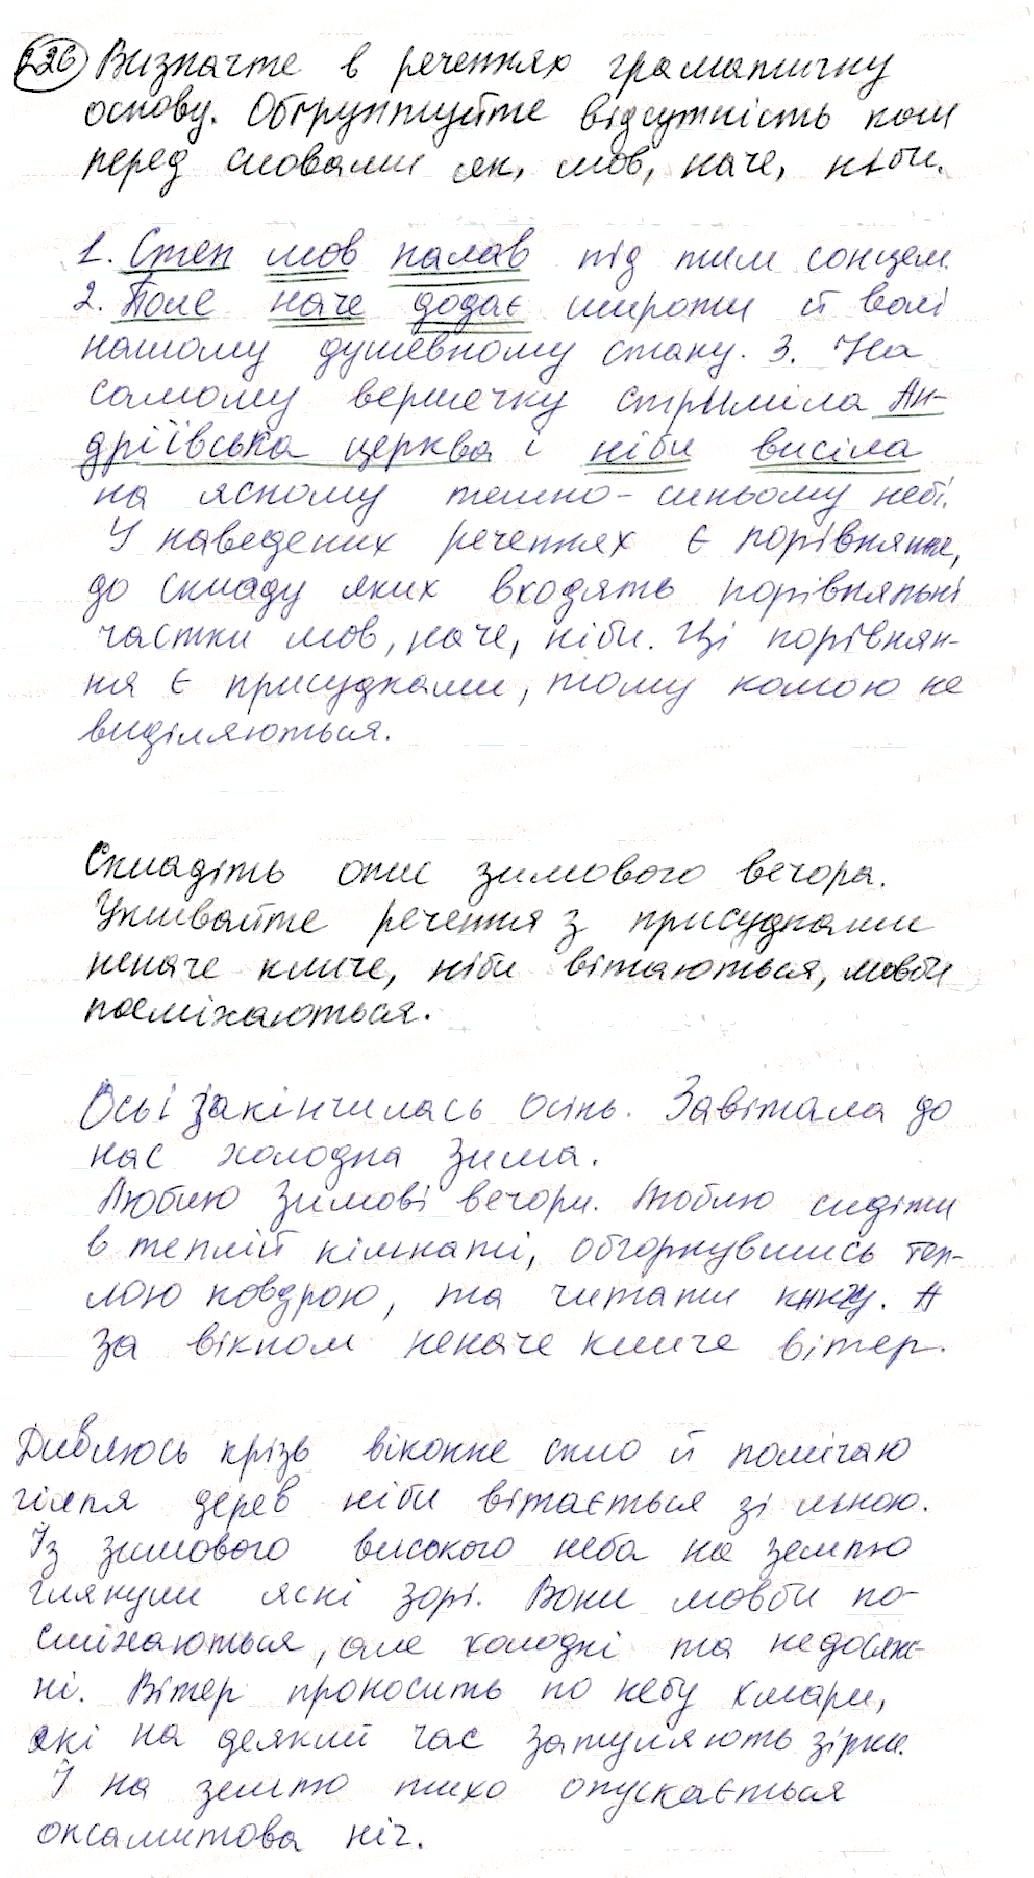 226 Визначте в реченнях граматичну
основу. Обґрунтуйте відсутність ком
перед словами як, мов, наче, ніби.
1. Степ мов палав під тим сонцем.
2. Поле наче додає широти й волі
нашому душевному стану. 3. На
самому вершечку стриміла Ан-
дріївська церква і ніби висіла
на ясному темно-синьому небі.
У наведених реченнях є порівняння,
до складу яких входять порівняльні
частки мов, наче, ніби. Ці порівнян-
ня є присудками, тому комою не
виділяються.
Складіть опис зимового вечора.
Уживайте речення з присудками
неначе кличе, ніби вітаються, мовби
посміхаються.
Ось і закінчилась осінь. Завітала до
нас холодна зима.
Люблю зимові вечори. Люблю сидіти
в теплій кімнаті, обгорнувшись теп-
лою ковдрою, та читати книгу. А
за вікном неначе кличе вітер.
Дивлюсь крізь віконне скло й помічаю
гілля дерев ніби вітається зі мною.
Із зимового високого неба на землю
глянули ясні зорі. Вони мовби по-
сміхаються, але холодні та недосяж-
ні. Вітер проносить по небу хмари,
які на деякий час затуляють зірки.
І на землю тихо опускається
оксамитова ніч.